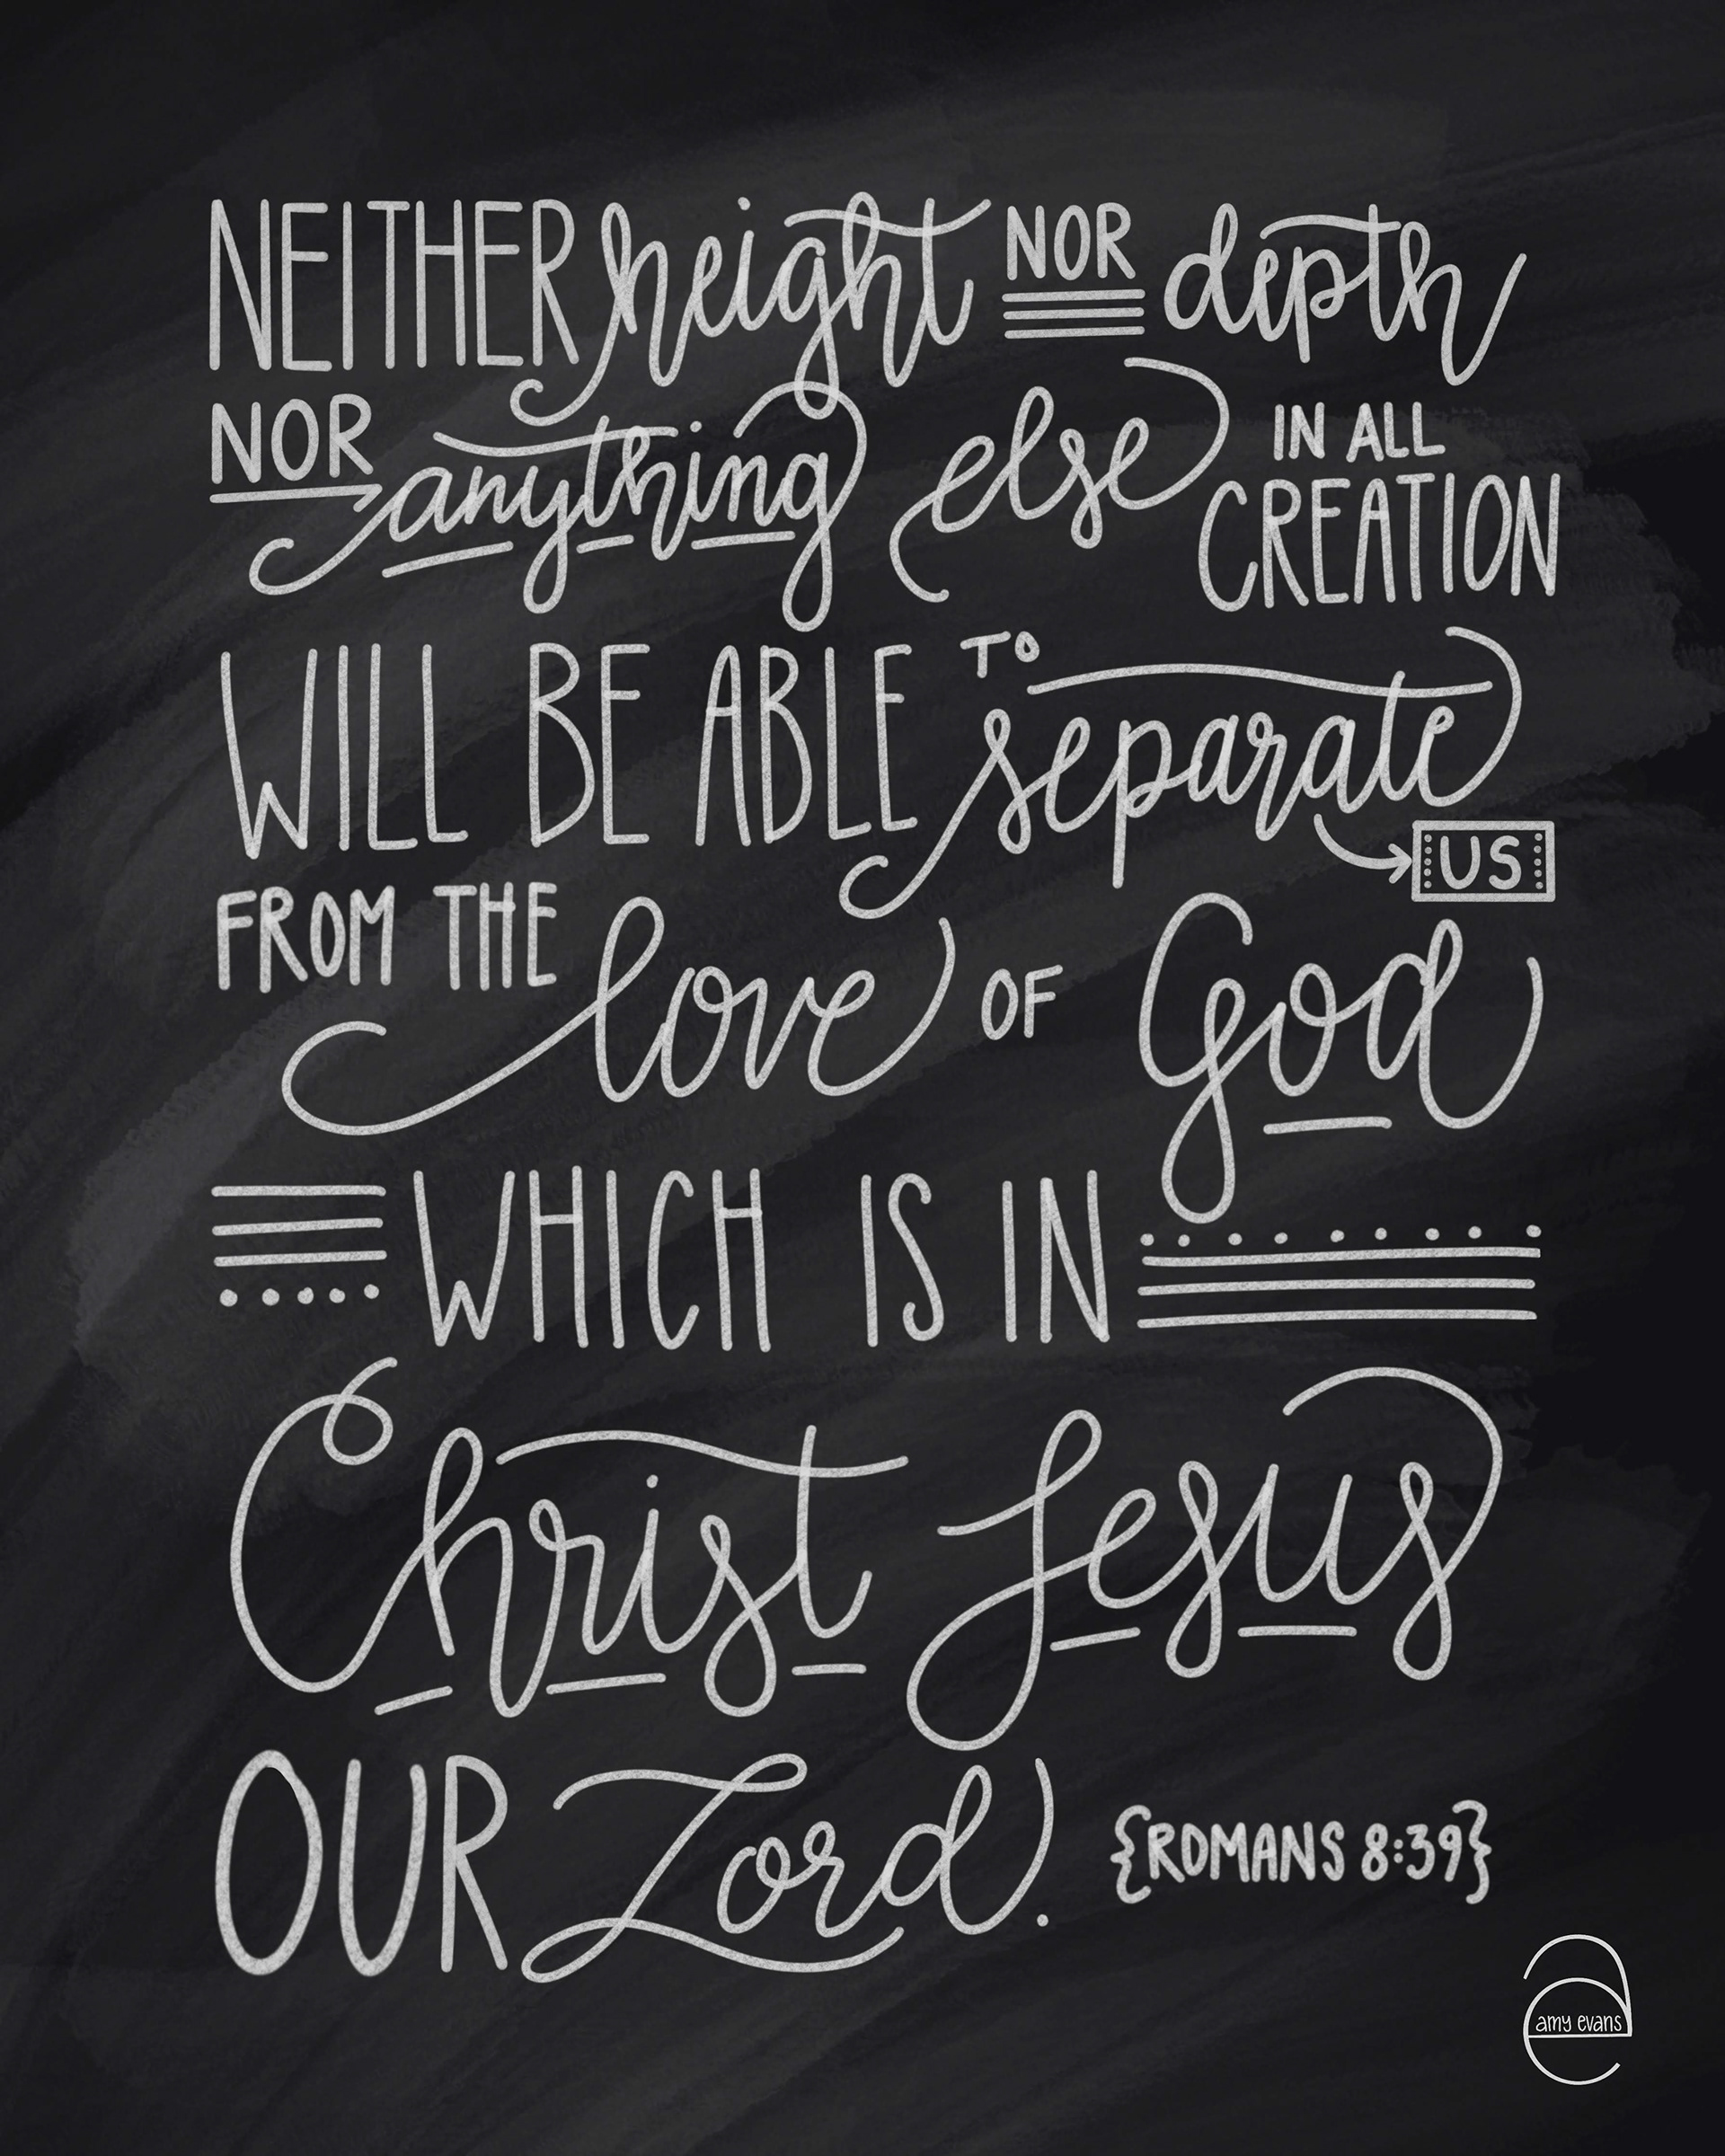 NEITHER height NOR depth
NOR anything else IN ALL
CREATION
WILL BE ABLE TO separate
US
FROM THE love OF God
WHICH IS IN
Christ Jesus
OUR Lord. {ROMANS 8:39}
amy evans